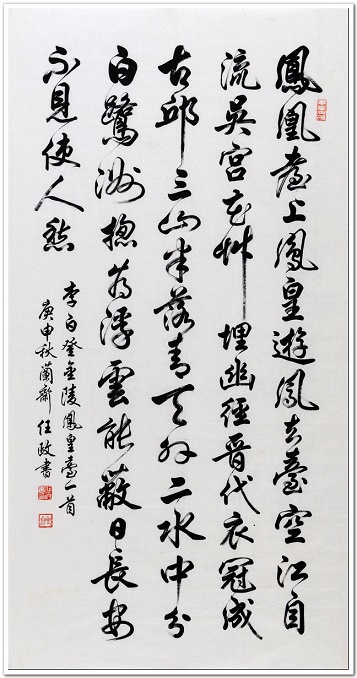 鳳凰臺上鳳皇遊鳳去臺空江自
流吳宮花艸埋幽徑晉代衣冠成
古邱三山半落青天外二水中分
白鷺洲摠為浮雲能蔽日長安
不見使人愁
李白登金陵鳳皇臺一首
庚申秋蘭齋任政書